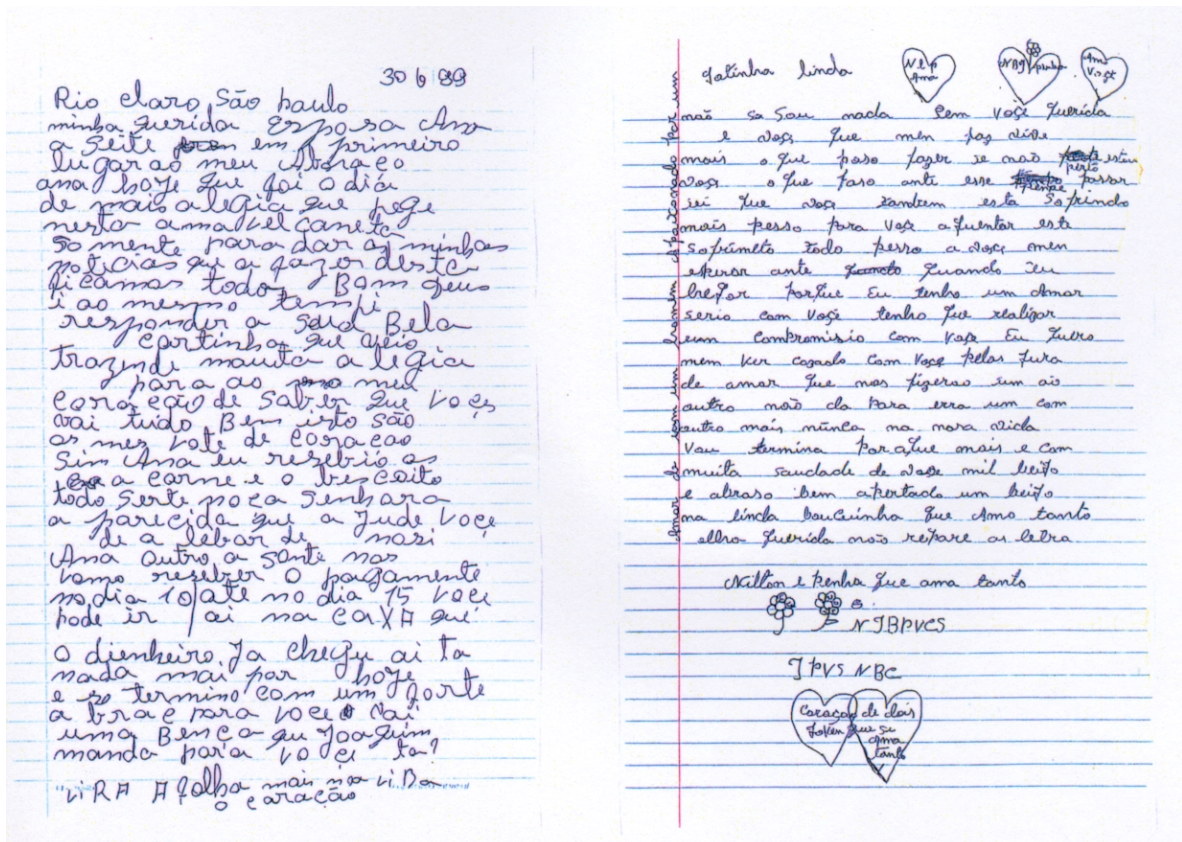 30 6 99
Rio claro, São paulo
minha querida Esposa Ana
a seite em primeiro
lugar ao meu Abraço
ana hoje que foi o dia
de mais alegia que pege
nesta amavel caneta
so mente para dar as minhas
noticias que a fazer desta
ficamos todo, Bom deus
i ao mesmo tempi
responder a sua Bela
cartinha que veio
trazendo mauita a legia
para ao meu
coração de saber que voces
vai tudo Bem isto são
os meu vote de coraçao
Sim Ana eu resebio as
a carne e o bescoito
todo serte noça senhara
a parecida que a Jude voçe
de a lebar de mosi
Ana outro a sonte nos
vamo reseber o pagamente
no dia 10 ate no dia 15 voce
pode ir ai na caiXA que
o dienheiro Ja chegu ai ta
nada mai por hoje
e termino com um forte
a braç para voce vai
uma Bença qu Joaquim
manda para voce ta?
viRA A folha mais não viBa
o caração
Gatinha linda
Ana
Amo
Voçe
não sa sou nada sem voçe querida
e voçe que men faz vive
mais o que poso fazer se não esteu
perto
voçe o que faso ante esse passar
sei que voçe tandem esta sofrindo
mais pesso para voçe aquentar este
sofrimeto todo pesso a voçe men
esperar ante quando eu
hegar porque Eu tenho um Amor
serio com voçe tenho que realizar
um compromisio com voçe Eu quero
mem ver cazado com voçe pelas jura
de amar que nos fizerao um ao
outro não da para erra um com
outro mais nunca na nosa vida
vou termina por aque mais e com
muita saudade de voçe mil beijo
e abraso bem apertado um beijo
na linda bouquinha que Amo tanto
olha querida não repare as letra
Amor de um homem apaixonado por um
Nilton e penha que ama tanto
NJBPVCS
JPVS NBC
Coraçao de dois
Joven que se
ama
tanto